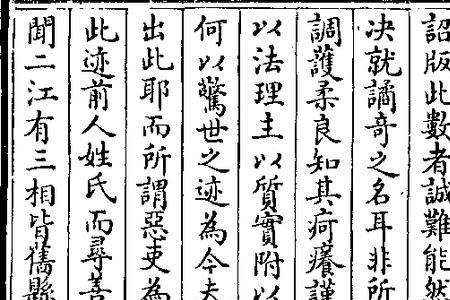 詔版此數者誠難能然
决就譎竒之名耳非所
調䕶柔良知其疴癢謹
以法理土以質實附以
何以驚世之迹為今夫
出此耶而所謂惡吏為
此迹前人姓氏而尋善
聞二江有三相皆舊縣